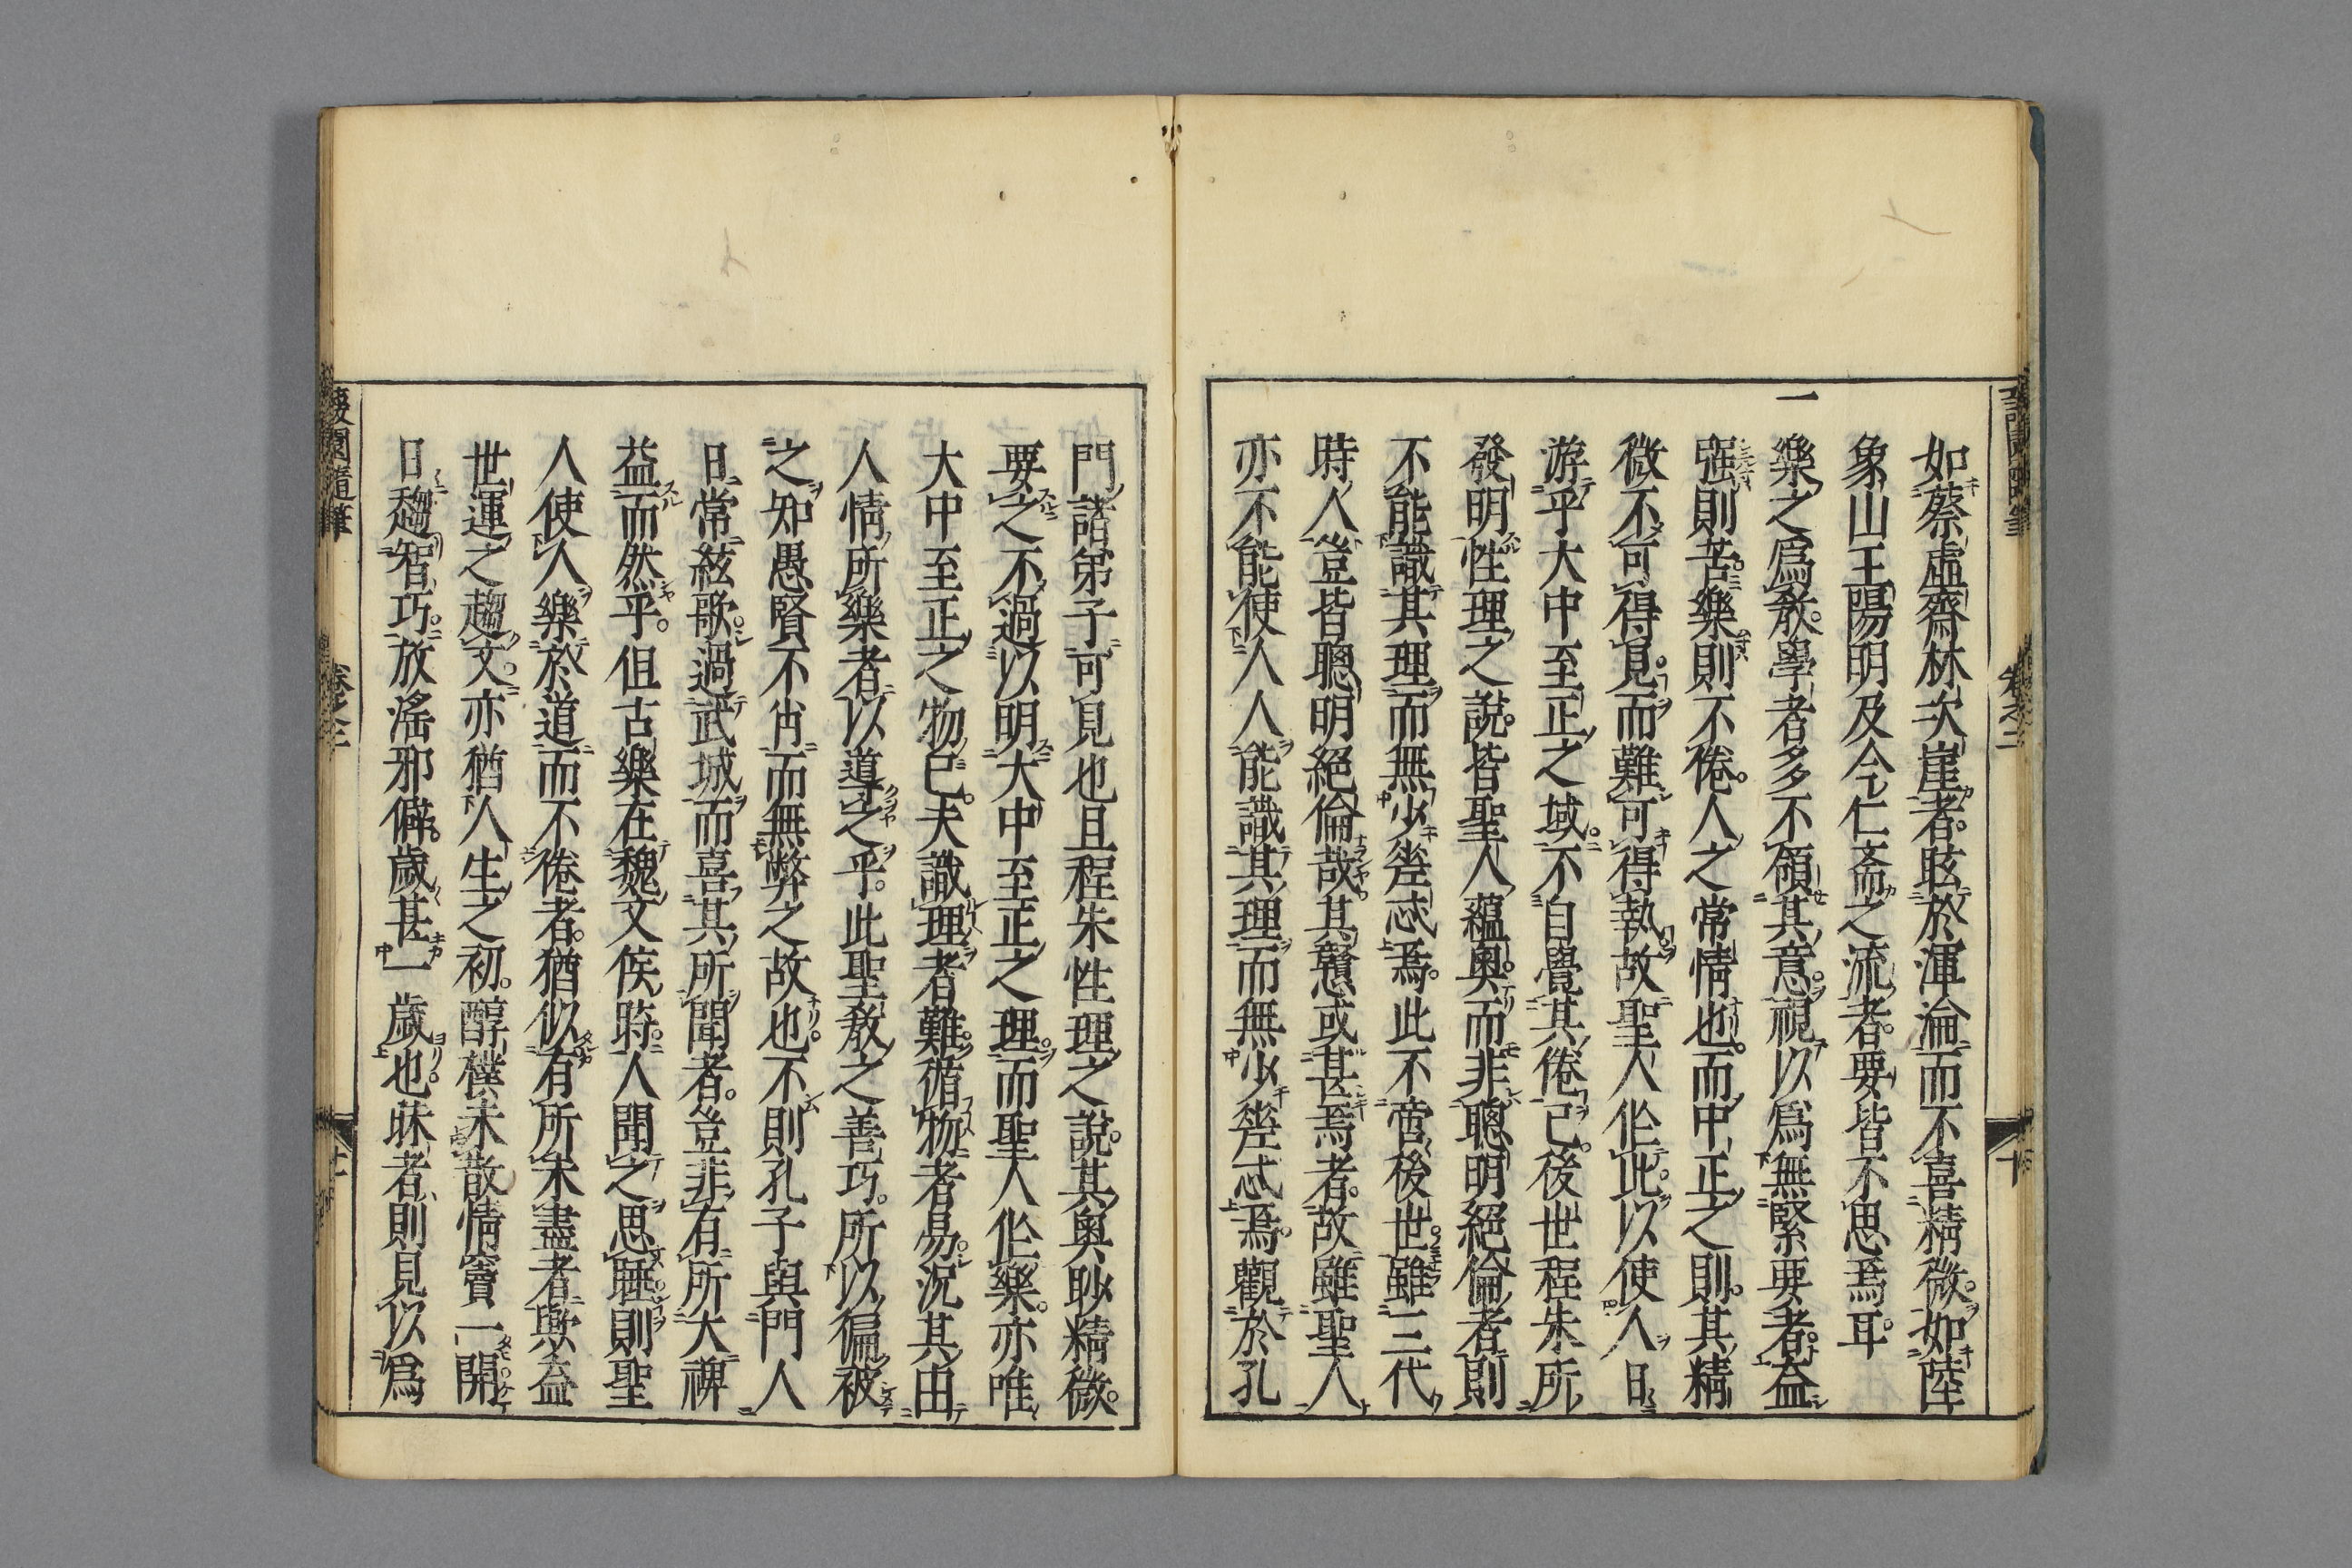 如蔡虛齋林次崖者眩於渾淪而不喜精微如陸
象山王陽明及今仁斎之流者要皆不思焉耳
一樂之爲敎學者多多不領其意視以爲無緊要者益
强則苦樂則不倦人之常情也而中正之則其精
微不可得見而難可得執故聖人作此以使人日
游乎大中至正之域不自覺其倦已後世程朱所
發明性理之說皆聖人蘊奧而非聰明絕倫者則
不能識其理而無少差忒焉此不啻後世雖三代
時人豈皆聰明絕倫哉其戇或甚焉者故雖聖人
亦不能使人人能識其理而無少差忒焉觀於孔
門諸弟子可見也且程朱性理之說其奧眇精微
要之不過以明大中至正之理而聖人作樂亦唯
大中至正之物已夫識理者難循物者易況其由
人情所樂者以導之乎此聖敎之善巧所以徧被
之知愚賢不肖而無弊之故也不則孔子與門人
日常絃歌過武城而喜其所聞者豈非有所大裨
益而然乎但古樂在魏文侯時人聞之思睡則聖
人使人樂於道而不倦者猶似有所未盡者歟益
世運之趨文亦猶人生之初醇樸未散情竇一開
日趨智巧放滛邪僻歲甚一歲也昧者則見以爲
蘐園隨筆 卷之二
十一
卷之二
十